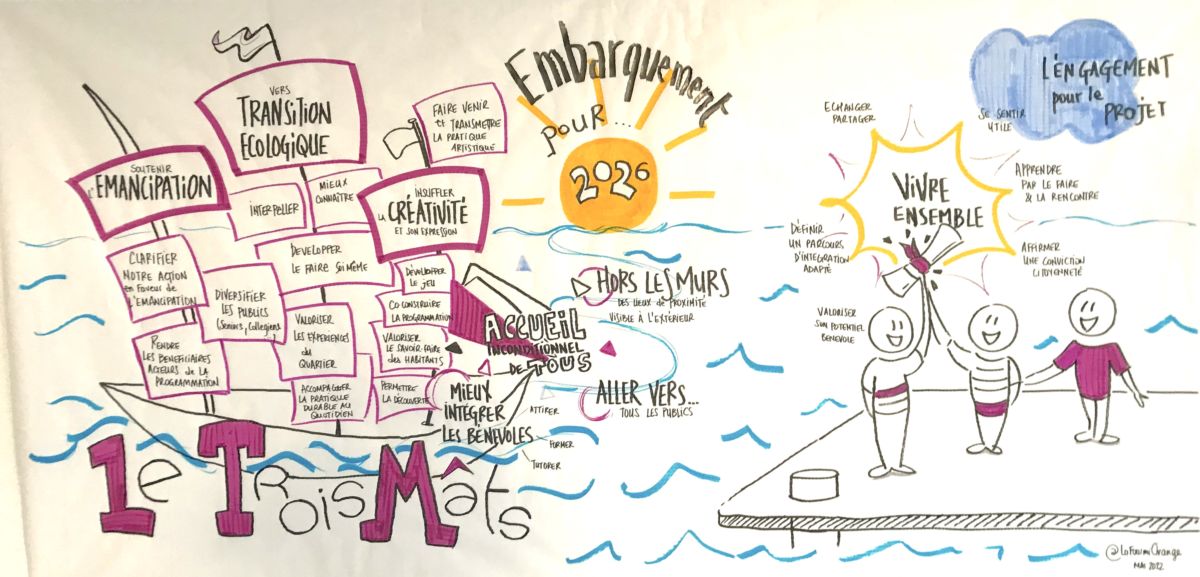 Embarquement
pour...
2026
L'ENGAGEMENT
pour le
PROJET
VERS
TRANSITION
ECOLOGIQUE
SOUTENIR
L'EMANCIPATION
FAIRE VENIR
et TRANSMETTRE
LA PRATIQUE
ARTISTIQUE
INTERPELLER
MIEUX
CONNAÎTRE
INSUFFLER
LA CRÉATIVITÉ
ET SON EXPRESSION
CLARIFIER
NOTRE ACTION
en Faveur de
L'EMANCIPATION
DEVELOPPER
LE FAIRE SOI MÊME
DIVERSIFIER
LES PUBLICS
(Seniors, Collegiens)
DÉVELOPPER
LE JEU
CO CONSTRUIRE
LA PROGRAMMATION
VALORISER
LES EXPERIENCES
du
QUARTIER
VALORISER
LE SAVOIR-FAIRE
des HABITANTS
RENDRE
LES BENEFICIAIRES
ACTEURS de LA
PROGRAMMATION
ACCOMPAGNER
LA PRATIQUE
DURABLE AU
QUOTIDIEN
PERMETTRE
LA DÉCOUVERTE
ACCUEIL
INCONDITIONNEL
DE TOUS
MIEUX
INTÉGRER
LES BÉNÉVOLES
ATTIRER
FORMER
TUTORER
HORS LES MURS
DES LIEUX DE PROXIMITÉ
VISIBLE À L'EXTÉRIEUR
ALLER VERS...
TOUS LES PUBLICS
ECHANGER
PARTAGER
SE SENTIR
UTILE
VIVRE
ENSEMBLE
APPRENDRE
PAR LE FAIRE
& LA RENCONTRE
DÉFINIR
UN PARCOURS
D'INTÉGRATION
ADAPTÉ
AFFIRMER
UNE CONVICTION
CITOYENNETÉ
VALORISER
SON POTENTIEL
BENEVOLE
Le Trois Mâts
@LaFourmiOrange
MAI 2022